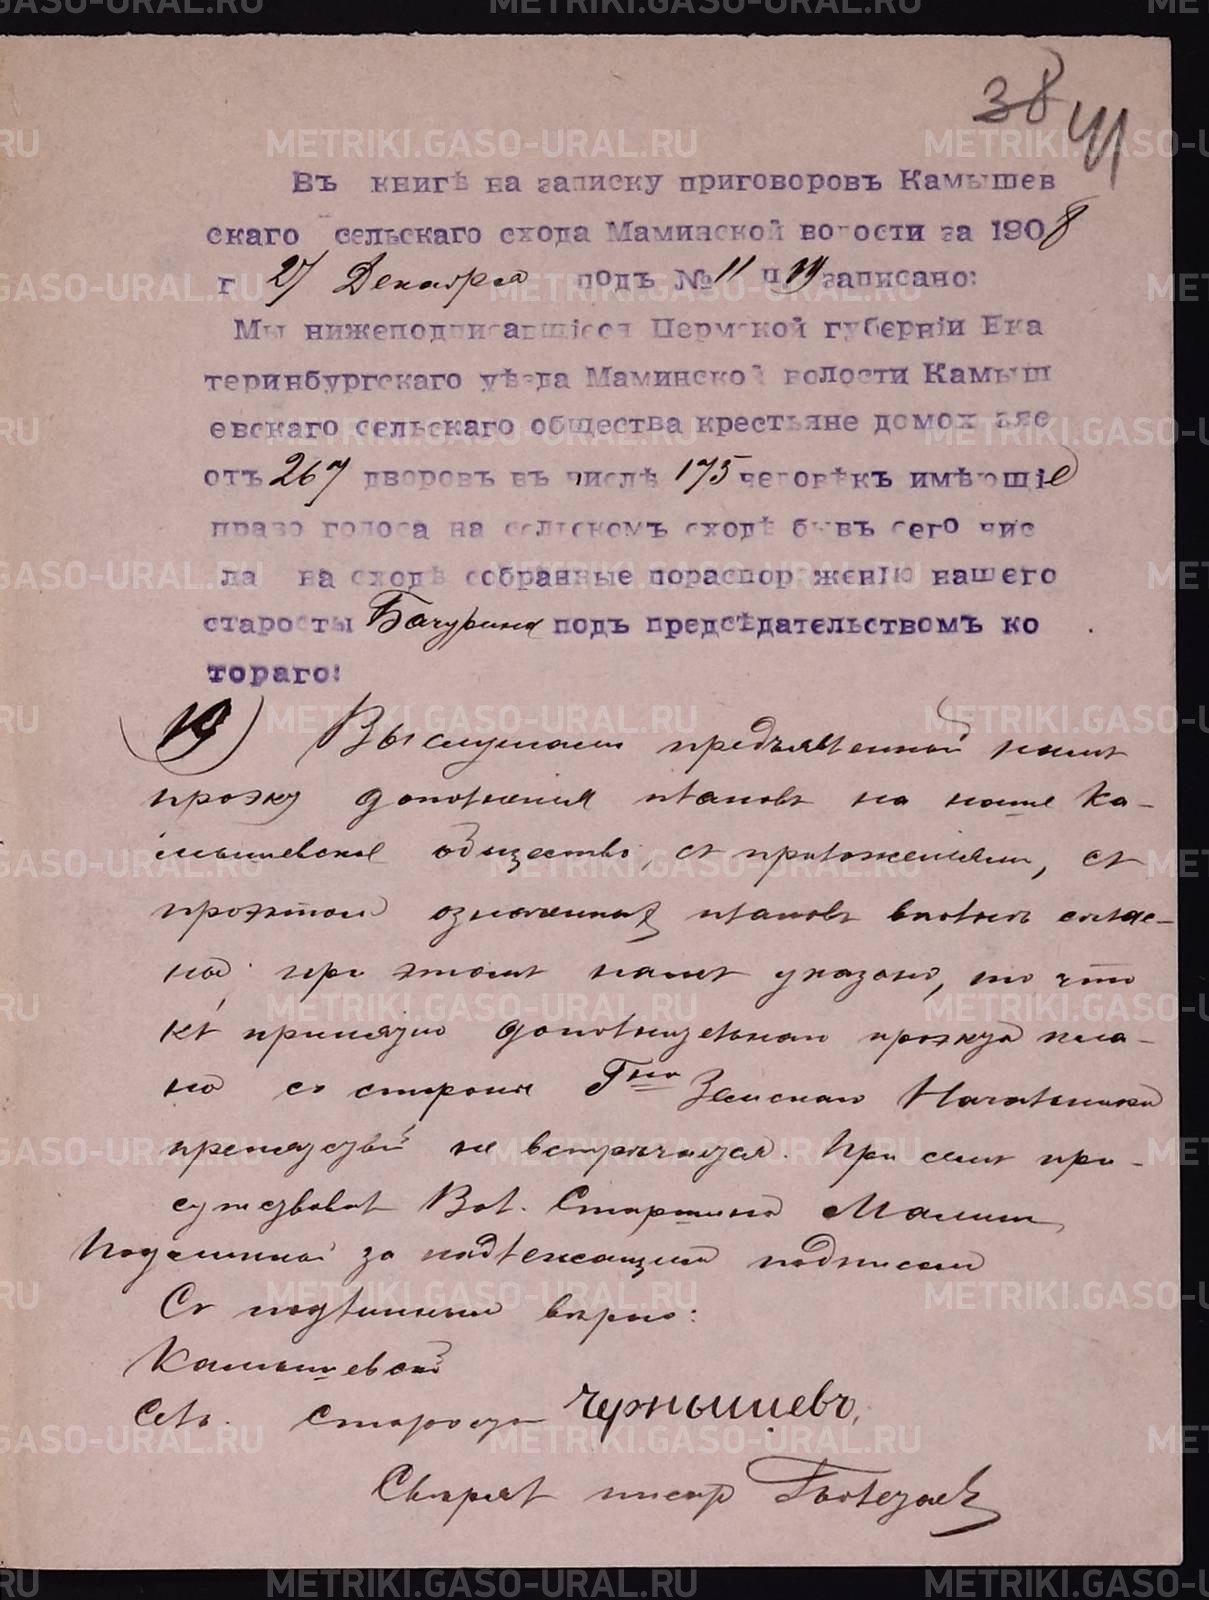 38 41
Въ книгѣ на записку приговоровъ Камышев
скаго сельскаго схода Маминской волости за 1908
г 27 Декабря подъ № 11 п 19 записано:
Мы нижеподписавшіеся Пермской губерніи Ека
теринбургскаго уѣзда Маминской волости Камыш
евскаго сельскаго общества крестьяне домохозяе
отъ 267 дворовъ въ числѣ 175 человѣкъ имѣющіе
право голоса на сельскомъ сходѣ бывъ сего чис
ла на сходѣ собранные пораспоряженію нашего
старосты Бачурина подъ предсѣдательствомъ ко
тораго:
19) Выслушали предъявленной намъ
проэкт дополнения планов на наше Ка-
мышевское общество, с приложениями, съ
проэктом означенных планов вполне соглас-
ны при этом намъ указано, то что
къ принятию дополнительнаго проэкта пла-
на со стороны Гна Земскаго Начальника
препятствий не встречается. При сем при-
сутствовал Вол. Старшина Мамин
Подлинной за надлежащими подписями
Съ подлинным верно:
Камышевской
Сель. Староста Чернышевъ.
Сверялъ писарь